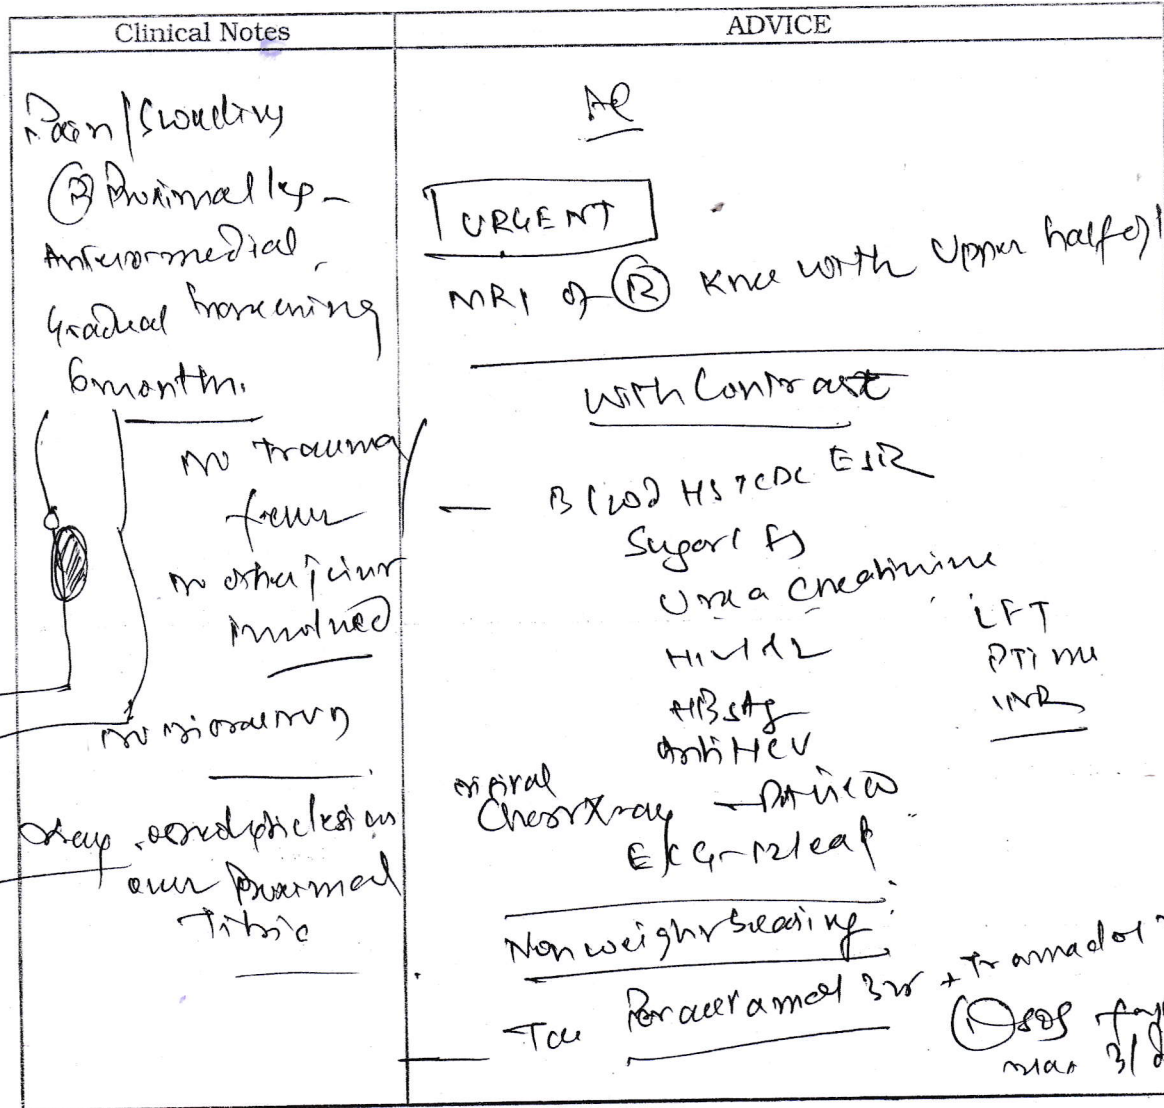 Clinical Notes
ADVICE
Pain / Swelling
(R) Proximal leg -
Anteromedial
Gradual worsening
6 month.
No trauma
fever
no other joint
involved
Xray
over Proximal
Tibia
URGENT
MRI of (R) Knee with Upper half of
with Contrast
Blood Hb TCDC ESR
Sugar (F)
Urea Creatinine
HIV 1&2
HBsAg
Anti HCV
LFT
PTime
INR
Chest Xray
EKG-12 lead
Non weight bearing
Tab Paracetamol 325 + Tramadol
(1) SOS
max 3/d